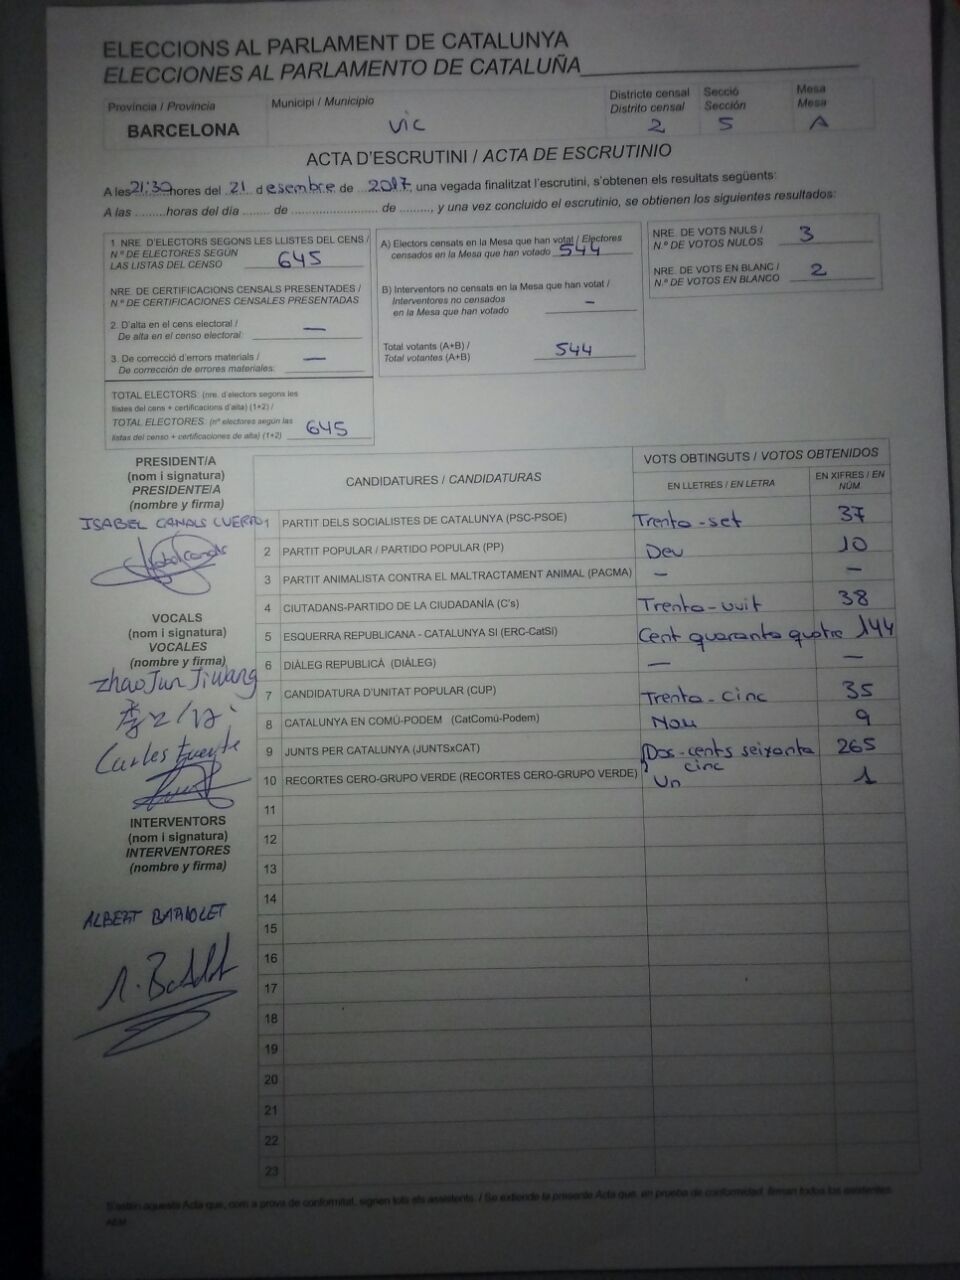 ELECCIONS AL PARLAMENT DE CATALUNYA
ELECCIONES AL PARLAMENTO DE CATALUÑA
Provincia / Provincia
BARCELONA
Municipi / Municipio
Vic
Districte censal
Distrito censal
2
Secció
Sección
5
Mesa
Mesa
A
ACTA D'ESCRUTINI / ACTA DE ESCRUTINIO
A les 21:30 hores del 21 d esembre de 2017, una vegada finalitzat l'escrutini, s'obtenen els resultats següents:
A las .........horas del día ........ de .......................... de ........., y una vez concluido el escrutinio, se obtienen los siguientes resultados:
1 NRE. D'ELECTORS SEGONS LES LLISTES DEL CENS /
N.º DE ELECTORES SEGÚN
LAS LISTAS DEL CENSO 645
NRE. DE CERTIFICACIONS CENSALS PRESENTADES /
N.º DE CERTIFICACIONES CENSALES PRESENTADAS
2. D'alta en el cens electoral /
De alta en el censo electoral: —
3. De correcció d'errors materials /
De corrección de errores materiales: —
TOTAL ELECTORS: (nre. d'electors segons les
llistes del cens + certificacions d'alta) (1+2) /
TOTAL ELECTORES: (nº electores según las
listas del censo + certificaciones de alta) (1+2) 645
A) Electors censats en la Mesa que han votat / Electores
censados en la Mesa que han votado 544
B) Interventors no censats en la Mesa que han votat /
Interventores no censados
en la Mesa que han votado —
Total votants (A+B) /
Total votantes (A+B) 544
NRE. DE VOTS NULS /
N.º DE VOTOS NULOS 3
NRE. DE VOTS EN BLANC /
N.º DE VOTOS EN BLANCO 2
PRESIDENT/A
(nom i signatura)
PRESIDENTE/A
(nombre y firma)
ISABEL CANALS CUERPO
VOCALS
(nom i signatura)
VOCALES
(nombre y firma)
zhaoJun Jiwang
Carles Fuerte
INTERVENTORS
(nom i signatura)
INTERVENTORES
(nombre y firma)
ALBERT BARDOLET
CANDIDATURES / CANDIDATURAS
VOTS OBTINGUTS / VOTOS OBTENIDOS
EN LLETRES / EN LETRA
EN XIFRES / EN
NÚM
1 PARTIT DELS SOCIALISTES DE CATALUNYA (PSC-PSOE) Trenta-set 37
2 PARTIT POPULAR / PARTIDO POPULAR (PP) Deu 10
3 PARTIT ANIMALISTA CONTRA EL MALTRACTAMENT ANIMAL (PACMA) — —
4 CIUTADANS-PARTIDO DE LA CIUDADANÍA (C's) Trenta-vuit 38
5 ESQUERRA REPUBLICANA - CATALUNYA SI (ERC-CatSI) Cent quaranta quatre 144
6 DIÀLEG REPUBLICÀ (DIÀLEG) — —
7 CANDIDATURA D'UNITAT POPULAR (CUP) Trenta-cinc 35
8 CATALUNYA EN COMÚ-PODEM (CatComú-Podem) Nou 9
9 JUNTS PER CATALUNYA (JUNTSxCAT) Dos-cents seixanta 265
cinc
10 RECORTES CERO-GRUPO VERDE (RECORTES CERO-GRUPO VERDE) Un 1
11
12
13
14
15
16
17
18
19
20
21
22
23
S'estén aquesta Acta que, com a prova de conformitat, signen tots els assistents. / Se extiende la presente Acta que, en prueba de conformidad, firman todos los asistentes.